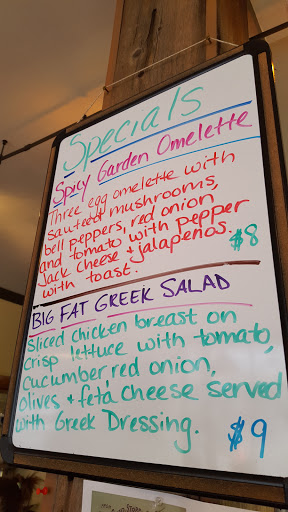 Specials
Spicy Garden Omelette
Three egg omelette with
sauteed mushrooms,
bell peppers, red onion
and tomato with pepper
Jack cheese + jalapeños.
with toast. $8
BIG FAT GREEK SALAD
Sliced chicken breast on
crisp lettuce with tomato,
cucumber, red onion,
olives + feta cheese served
with Greek Dressing. $9